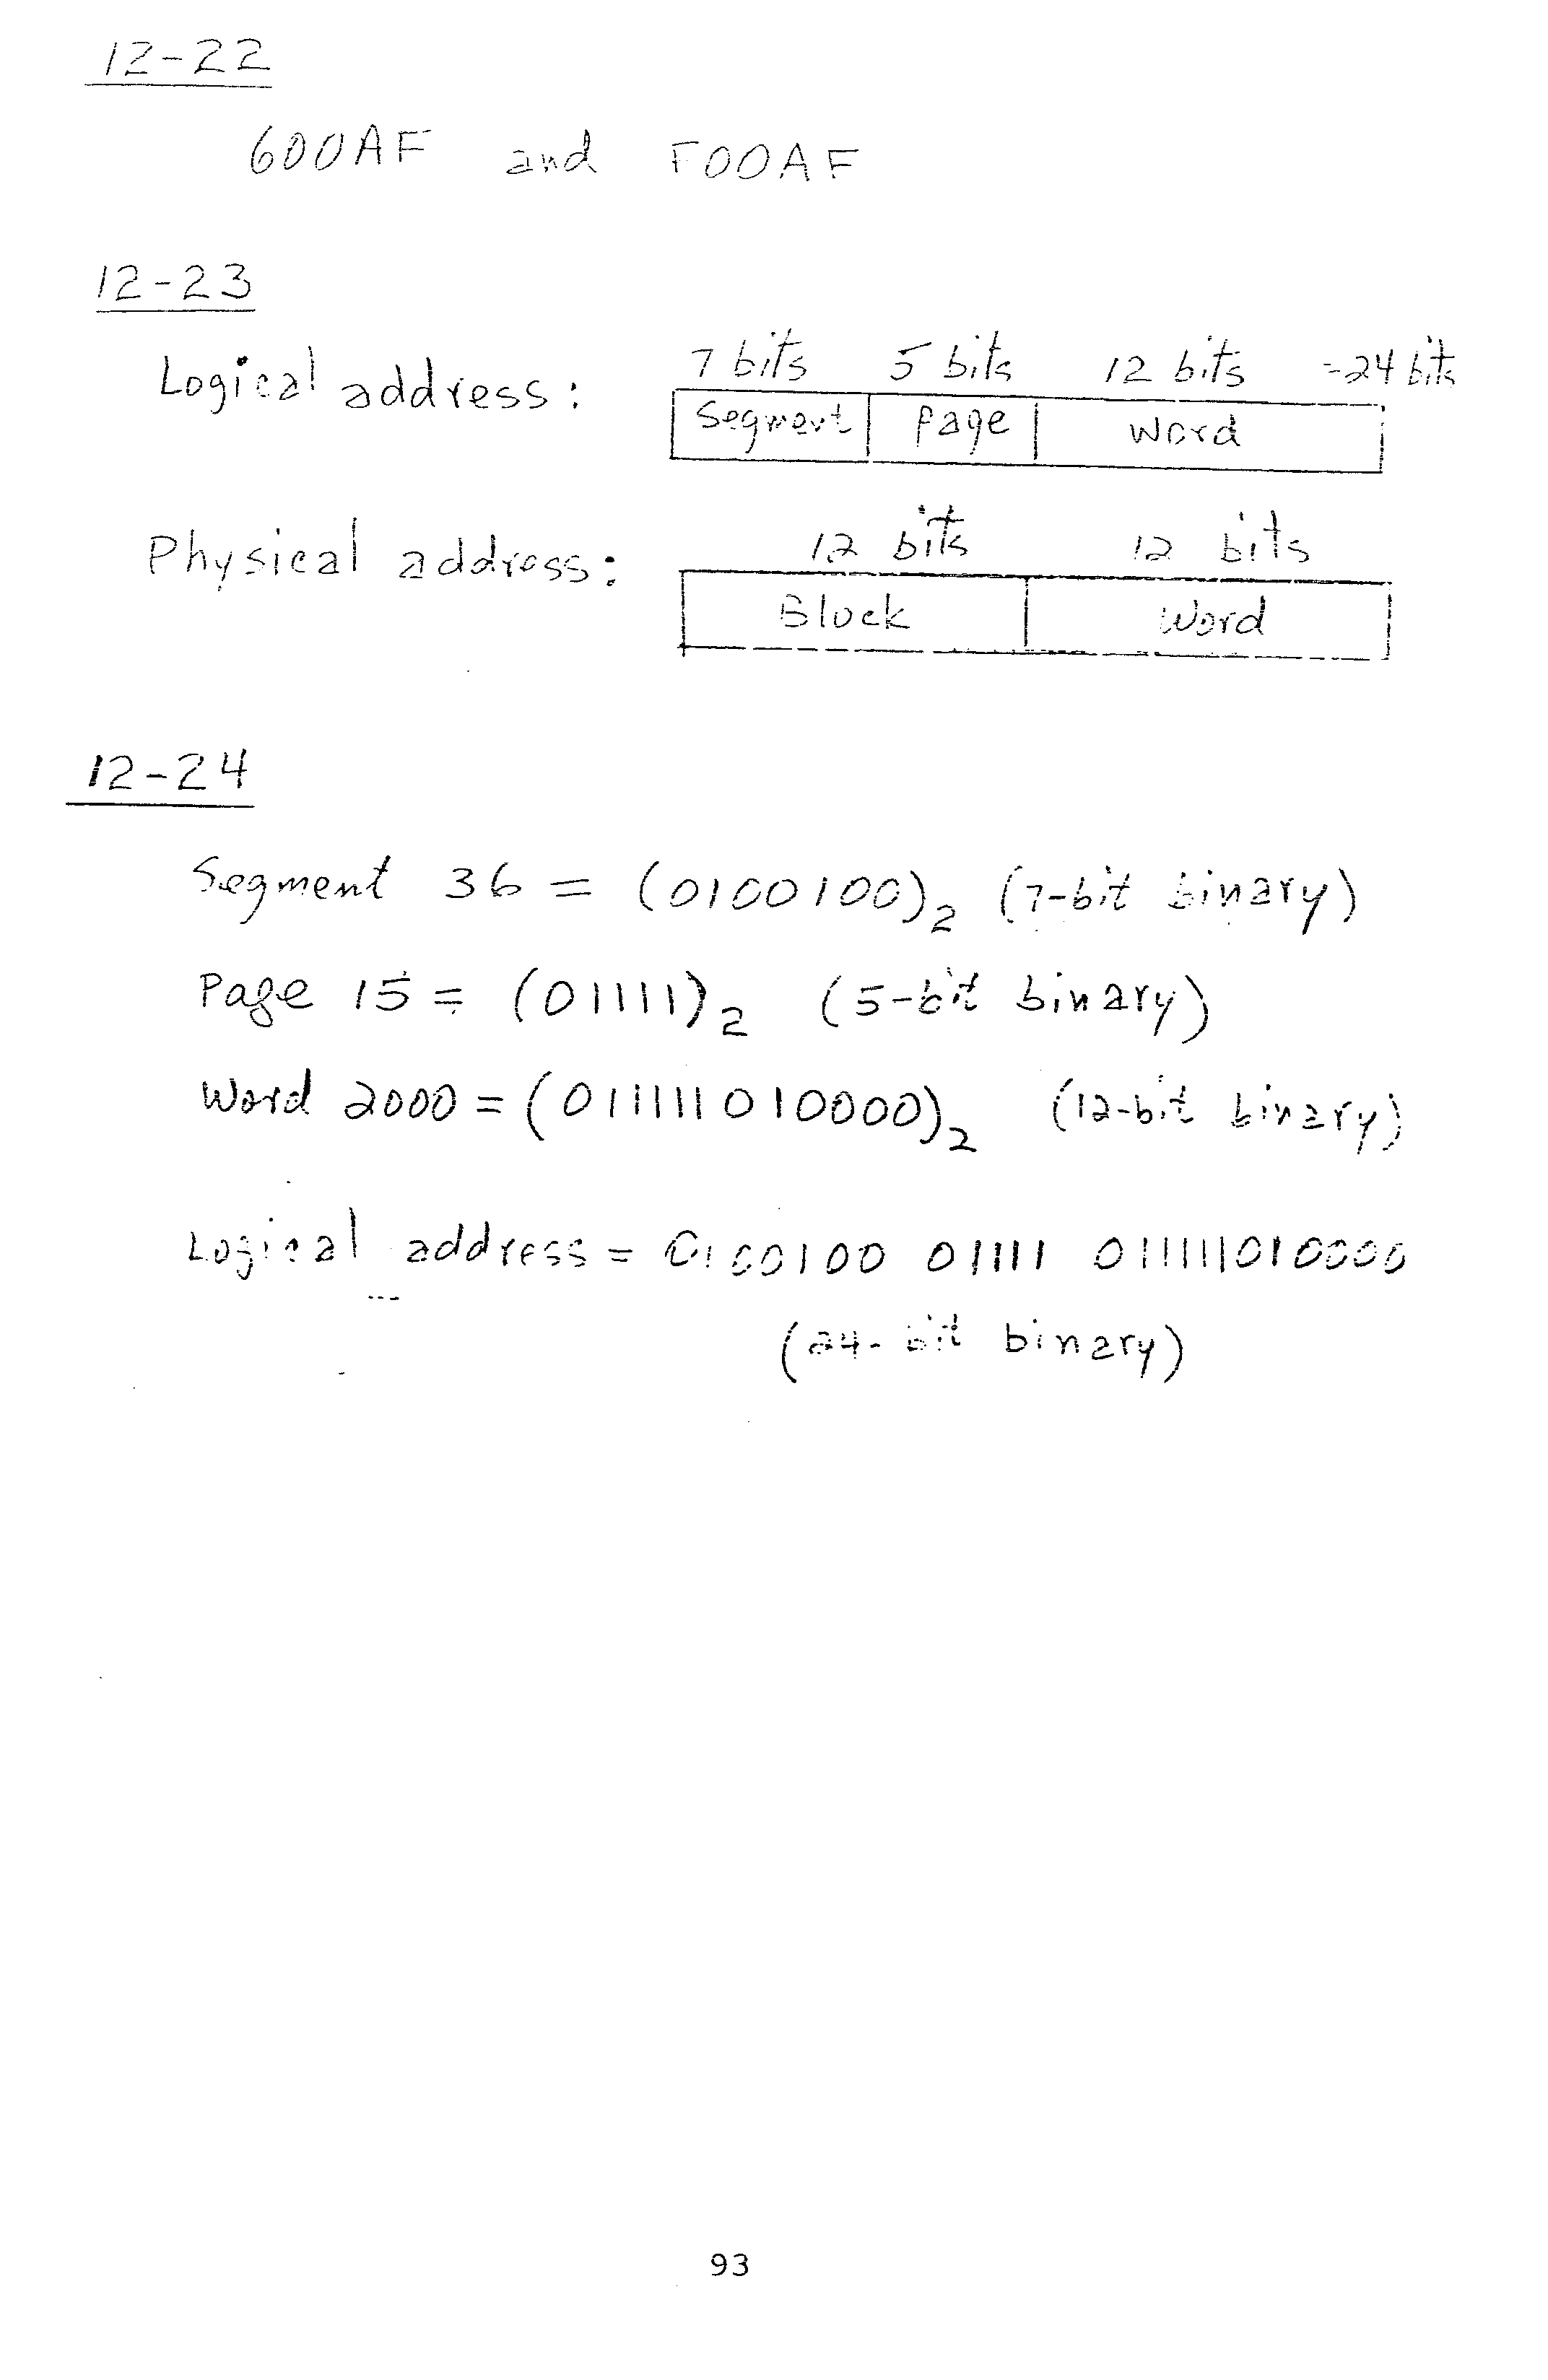 12-22
600AF and F00AF
12-23
Logical address: 7 bits 5 bits 12 bits =24 bits
Segment Page Word
Physical address: 12 bits 12 bits
Block Word
12-24
Segment 36 = (0100100)₂ (7-bit binary)
Page 15 = (01111)₂ (5-bit binary)
Word 2000 = (011111010000)₂ (12-bit binary)
Logical address = 0100100 01111 011111010000
(24-bit binary)
93